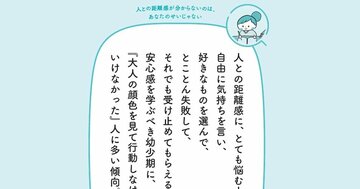 人との距離感が分からないのは、
あなたのせいじゃない
人との距離感に、とても悩む
自由に気持ちを言い、
好きなものを選んで、
とことん失敗して、
それでも受け止めてもらえる
安心感を学ぶべき幼少期に、
『大人の顔色を見て行動しなけ
いけなかった』人に多い傾向。